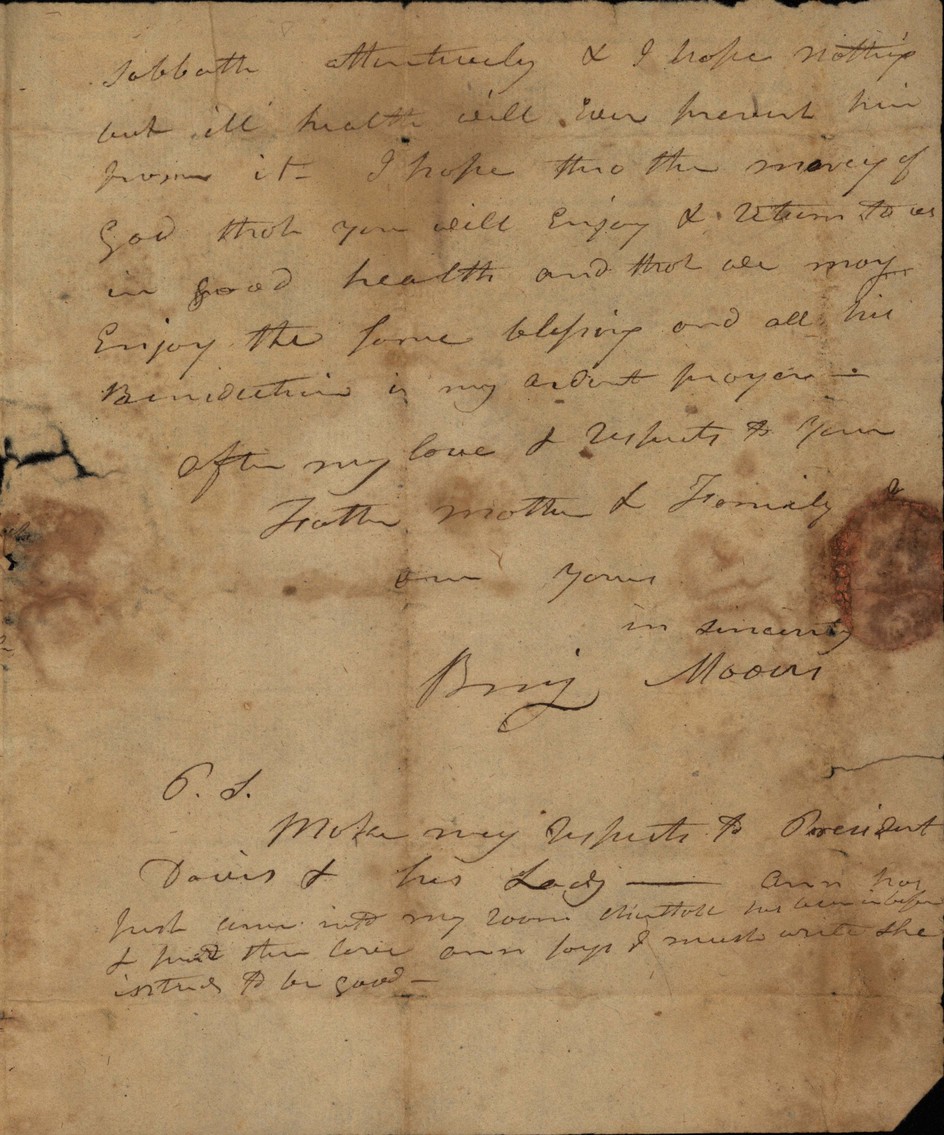 Sabbath attentively & I hope nothing
but ill health will ever prevent him
from it - I hope thro the mercy of
God that you will Enjoy & return to us
in good health and that we may
Enjoy the same blessing and all his
Benediction is my ardent prayer —
After my love & respects to your
Father, Mother & Family I
am yours
in sincerity
Benj Moores
P. S.
Make my respects to President
Davis & his Lady — Ann has
Just came into my room has been in before
& send their love Ann says I must write she
intends to be good —